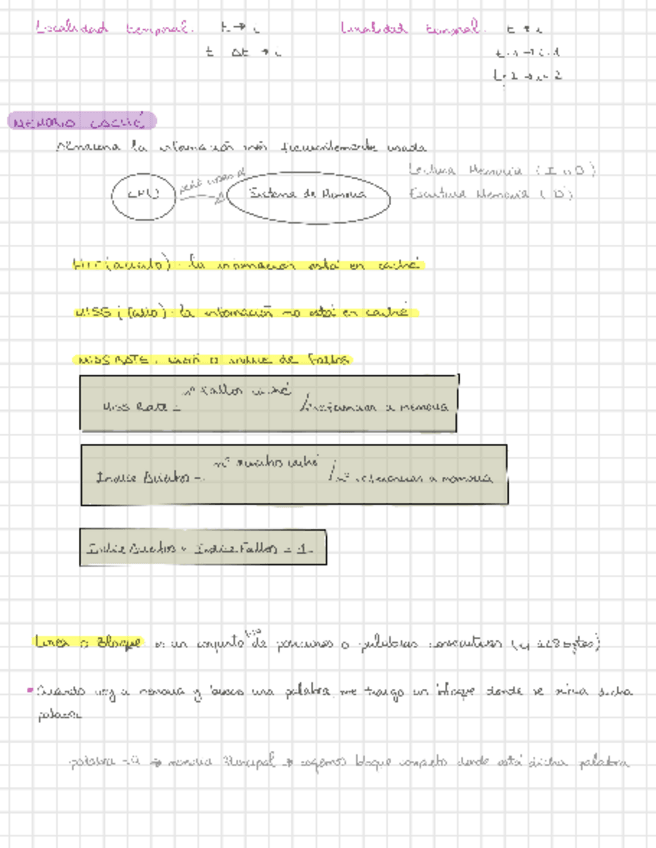 Localidad temporal. t → i
t + Δt → i
Localidad temporal. t → i
t+1 → i+1
t+2 → i+2
MEMORIA CACHÉ
Almacena la información más frecuentemente usada
CPU
Sistema de Memoria
Lectura Memoria (I o D)
Escritura Memoria (D)
HIT (acierto). la información está en caché
MISS (fallo). la información no está en caché
MISS RATE. índice de fallos
Miss Rate = nº fallos caché / referencias a memoria
Indice Aciertos = nº aciertos caché / nº referencias a memoria
Indice Aciertos + Indice Fallos = 1
Linea o Bloque es un conjunto de posiciones o palabras consecutivas (128 bytes)
Cuando voy a memoria y busco una palabra, me traigo un bloque donde se dicha
palabra
palabra → memoria → cogemos bloque completo donde está dicha palabra